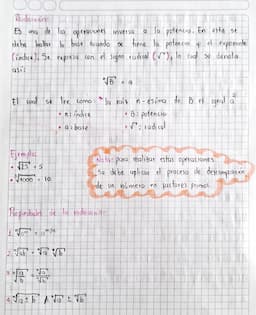 Radicación:
Es una de las operaciones inversa a la potencia. En esta se
debe hallar la base cuando se tiene la potencia y el exponente
(índice). Se expresa con el signo radical (√), la cual se denota
así:
ⁿ√B = a
El cual se lee como: "La raíz n-esima de B es igual a"
• n: índice • B: potencia
• a: base • √: radical
Ejemplo:
Nota: para realizar estas operaciones
se debe aplicar el proceso de descomposición
de un número en factores primos.
Propiedades de la radicación: